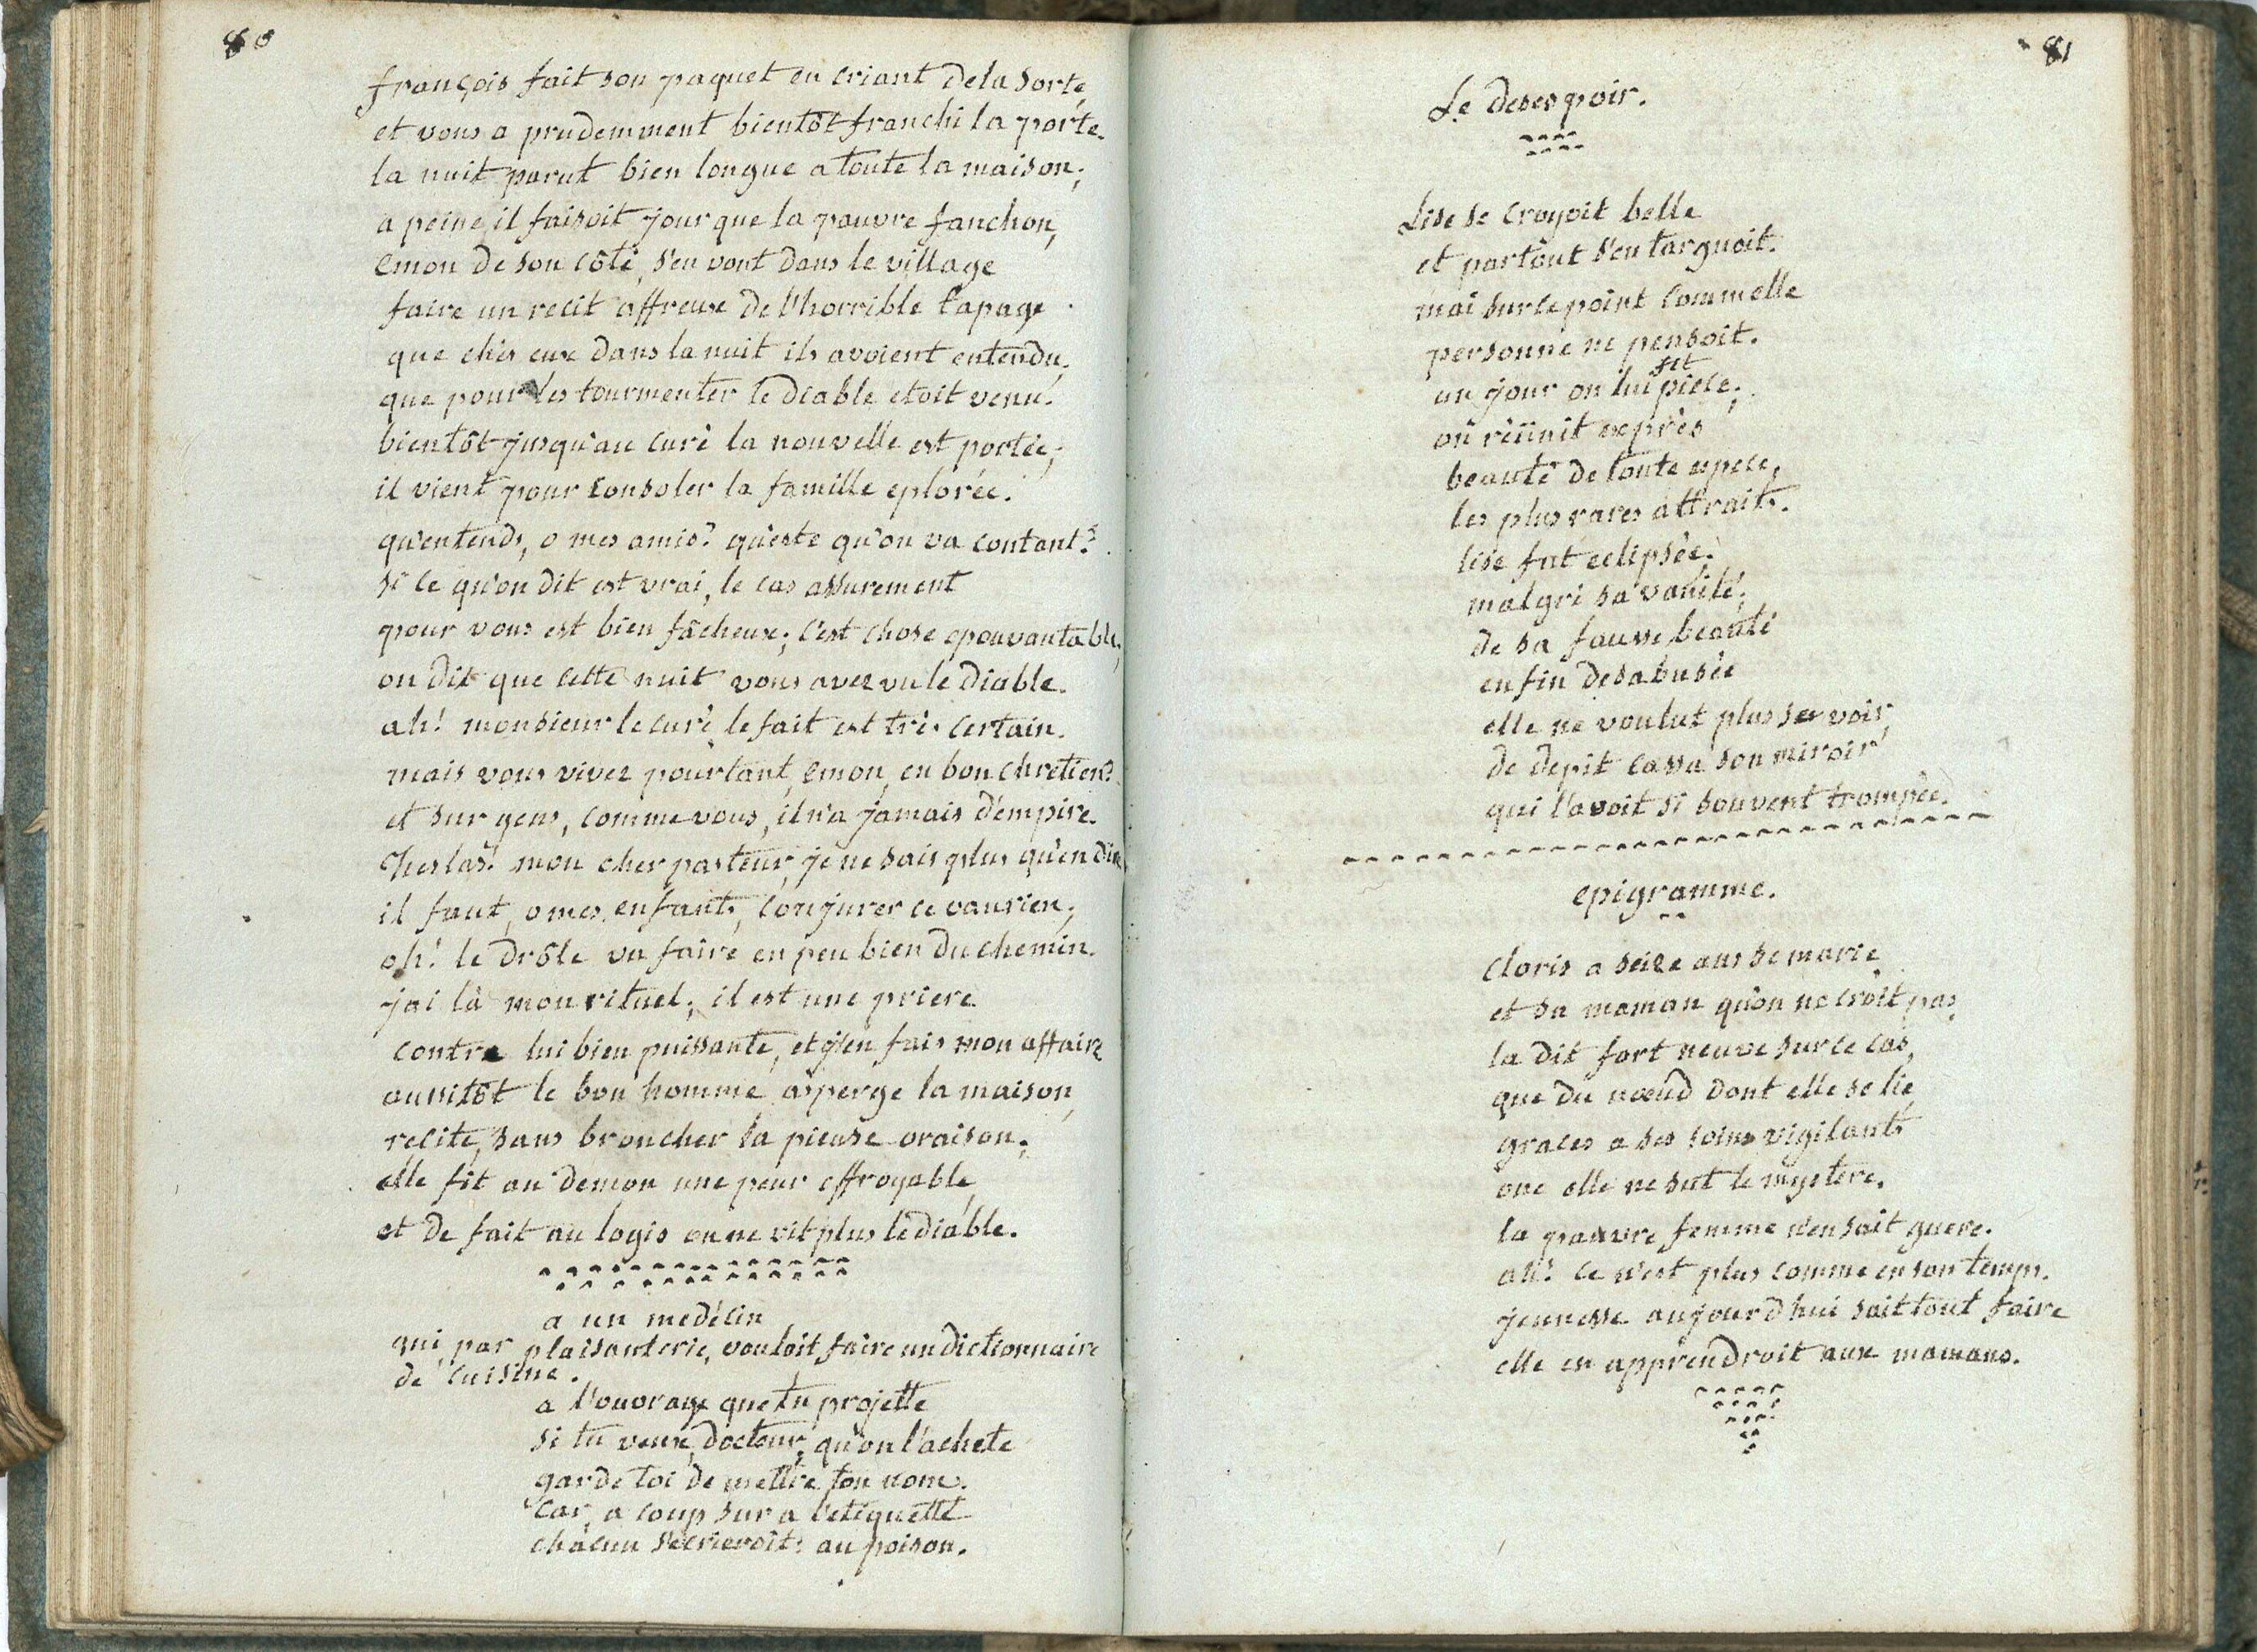 80
françois fait son paquet en criant de la sorte
et vous a prudemment bientôt franchi la porte.
la nuit parut bien longue a toute la maison;
a peine il faisoit jour que la pauvre fanchon,
emon de son côté, s'en vont dans le village
faire un recit affreux de l'horrible tapage
que chés eux dans la nuit ils avoient entendu,
que pour les tourmenter le diable etoit venu.
bientôt jusqu'au curé la nouvelle est portée;
il vient pour consoler la famille eplorée.
qu'entends, o mes amis? qu'este qu'on va contant?
si ce qu'on dit est vrai, le cas assurement
pour vous est bien fâcheux; c'est chose epouvantable,
on dit que cette nuit vous avez vu le diable.
ah! monsieur le curé, le fait est très certain.
mais vous vivez pourtant, emon, en bon chretien?
et sur gens, comme vous, il n'a jamais d'empire.
heslas! mon cher pasteur, je ne sais plus qu'en dire
il faut, o mes enfants, conjurer ce vaurien;
oh! le drôle va faire en peu bien du chemin.
j'ai là mon rituel; il est une priere
contre lui bien puissante, et j'en fais mon affaire
aussitôt le bon homme asperge la maison,
recite, sans broncher la pieuse oraison;
elle fit au demon une peur effroyable,
et de fait au logis on ne vit plus le diable.
a un medécin
qui par plaisanterie, vouloit faire un dictionnaire
de cuisine.
a l'ouvrage que tu projette
si tu veux, docteur, qu'on l'achete
garde toi de mettre ton nom.
car, a coup sur a l'etiquette
chacun s'ecrieroit: au poison.
81
Le desespoir.
Lise se croyoit belle
et partout s'en targuoit.
mai sur ce point comm elle
personne ne pensoit.
un jour on lui fit piece;
on réunit exprès
beauté de toute espece,
les plus rares attraits.
lise fut eclipsée.
malgré sa vanité,
de sa fausse beauté
enfin desabusée
elle ne voulut plus se voir,
de depit cassa son miroir
qui l'avoit si souvent trompée.
epigramme.
Cloris a seize ans se marie
et sa maman qu'on ne croit pas
la dit fort neuve sur ce cas,
que du nœud dont elle se lie
graces a ses soins vigilants
onc elle ne sut le mystere.
la pauvre femme n'en sait guere.
ah! ce n'est plus comme en son temps.
jeunesse aujourd'hui sait tout faire
elle en apprendroit aux mamans.